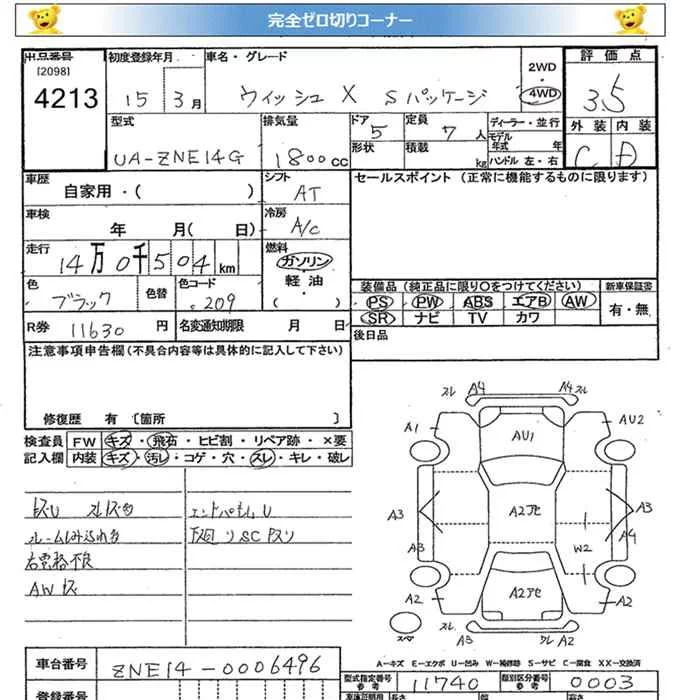 完全ゼロ切りコーナー
出品番号 初度登録年月 車名・グレード 2WD 評価点
[2098]
4213 15 3月 ウィッシュ X Sパッケージ 4WD 3.5
型式 排気量 ドア 定員 ディーラー・並行 外装 内装
5 7人 モデル年式 年
UA-ZNE14G 1800cc 形状 積載 kg ハンドル 左・右 C D
車歴 シフト セールスポイント (正常に機能するものに限ります)
自家用・( ) AT
車検 冷房
年 月( 日) A/C
走行 燃料
14万0千504km ガソリン
色 色替 色コード 軽油 装備品 (純正品に限り○をつけてください) 新車保証書
ブラック 209 ( ) PS PW ABS エアB AW 有・無
R券 11630円 名変通知期限 月 日 SR ナビ TV カワ
注意事項申告欄(不具合内容等は具体的に記入して下さい) 後日品
修復歴 有 〔箇所 〕
検査員 FW キズ・飛石・ヒビ割・リペア跡・×要
記入欄 内装 キズ・汚レ・コゲ・穴・スレ・キレ・破レ
スレ A4 A4 スレ
A1 AU1 AU2
A3 A2アセ A3
A3 A4
W2
A2 A2アセ A2
スペア スレ A3 スレ A2
AWキズ
A－キズ E－エクボ U－凹み W－補修跡 S－サビ C－腐食 XX－交換済
車台番号 ZNE14-0006496 型式指定番号 参考 11740 類別区分番号 参考 0003
登録番号